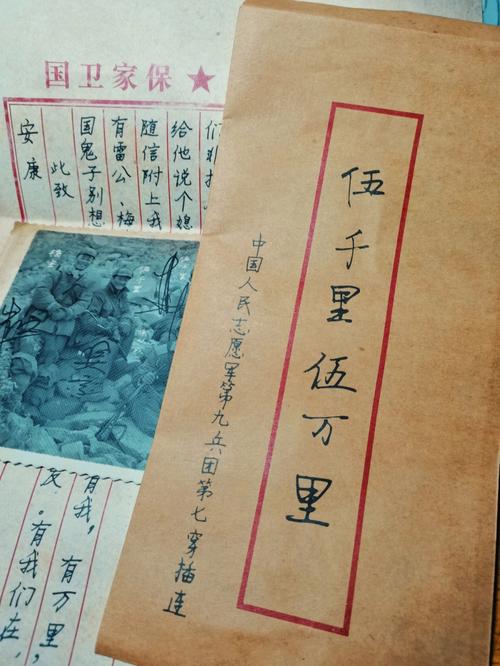 保家卫国
们非打
给他说个媳
随信附上我
有雷公、梅
国鬼子别想
此致
安康
有我，有万里，
有我们在，
伍千里伍万里
中国人民志愿军第九兵团第七穿插连